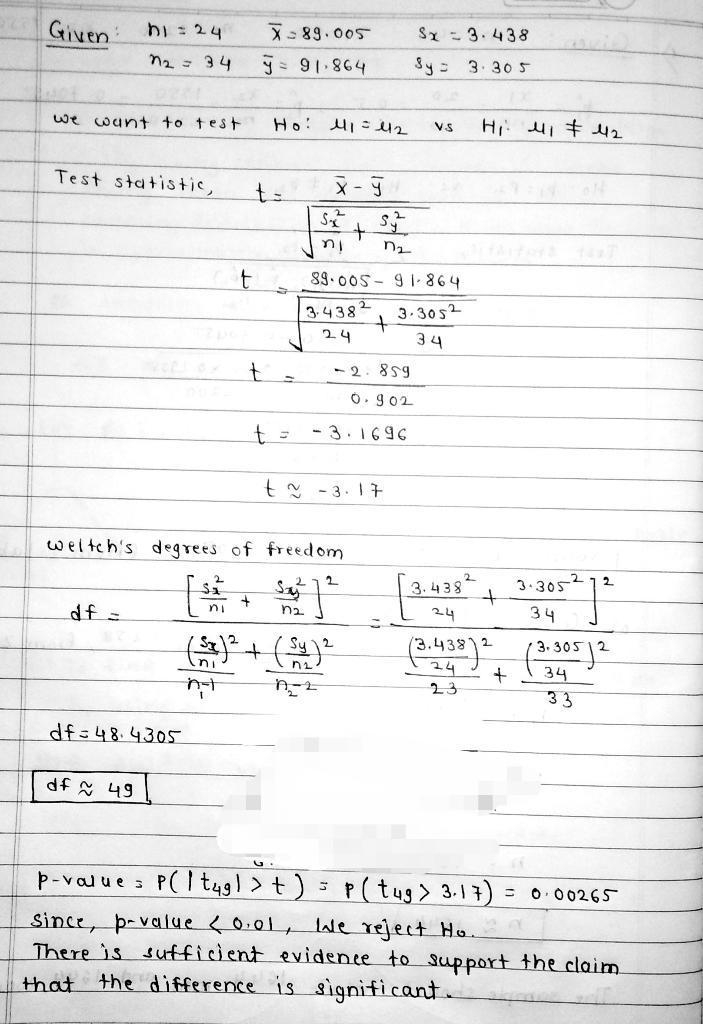 Given: n1 = 24 x̄ = 89.005 Sx = 3.438
n2 = 34 ȳ = 91.864 Sy = 3.305
we want to test Ho: μ1 = μ2 vs H1: μ1 ≠ μ2
Test statistic, t = (x̄ - ȳ) / √(Sx²/n1 + Sy²/n2)
t = (89.005 - 91.864) / √(3.438²/24 + 3.305²/34)
t = -2.859 / 0.902
t = -3.1696
t ≈ -3.17
weltch's degrees of freedom
df = [Sx²/n1 + Sy²/n2]² / ((Sx/n1)²/(n1-1) + (Sy/n2)²/(n2-2)) = [3.438²/24 + 3.305²/34]² / ((3.438/24)²/23 + (3.305/34)²/33)
df = 48.4305
df ≈ 49
p-value = P(|t49| > t) = P(t49 > 3.17) = 0.00265
Since, p-value < 0.01, We reject Ho.
There is sufficient evidence to support the claim
that the difference is significant.